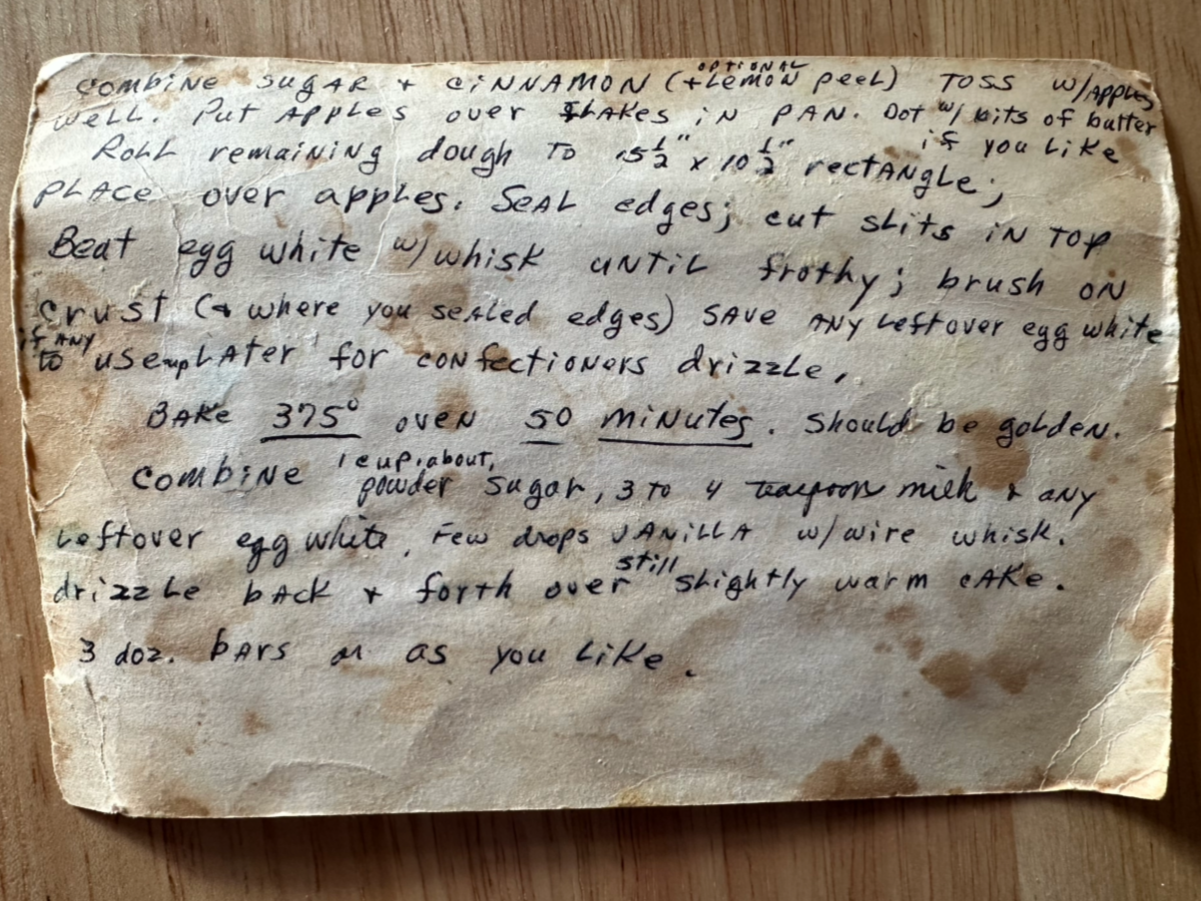 combine sugar + cinnamon (+ lemon peel) toss w/ apples
optional
well. Put apples over flakes in pan. Dot w/ bits of butter
if you like
Roll remaining dough to 15 1/2" x 10 1/2" rectangle;
place over apples. Seal edges; cut slits in top
Beat egg white w/ whisk until frothy; brush on
crust (& where you sealed edges) save any leftover egg white
if any
to use up later for confectioners drizzle.
Bake 375° oven 50 minutes. Should be golden.
combine 1 cup, about,
powder sugar, 3 to 4 teaspoons milk & any
leftover egg white. Few drops vanilla w/ wire whisk.
drizzle back & forth over still slightly warm cake.
3 doz. bars or as you like.